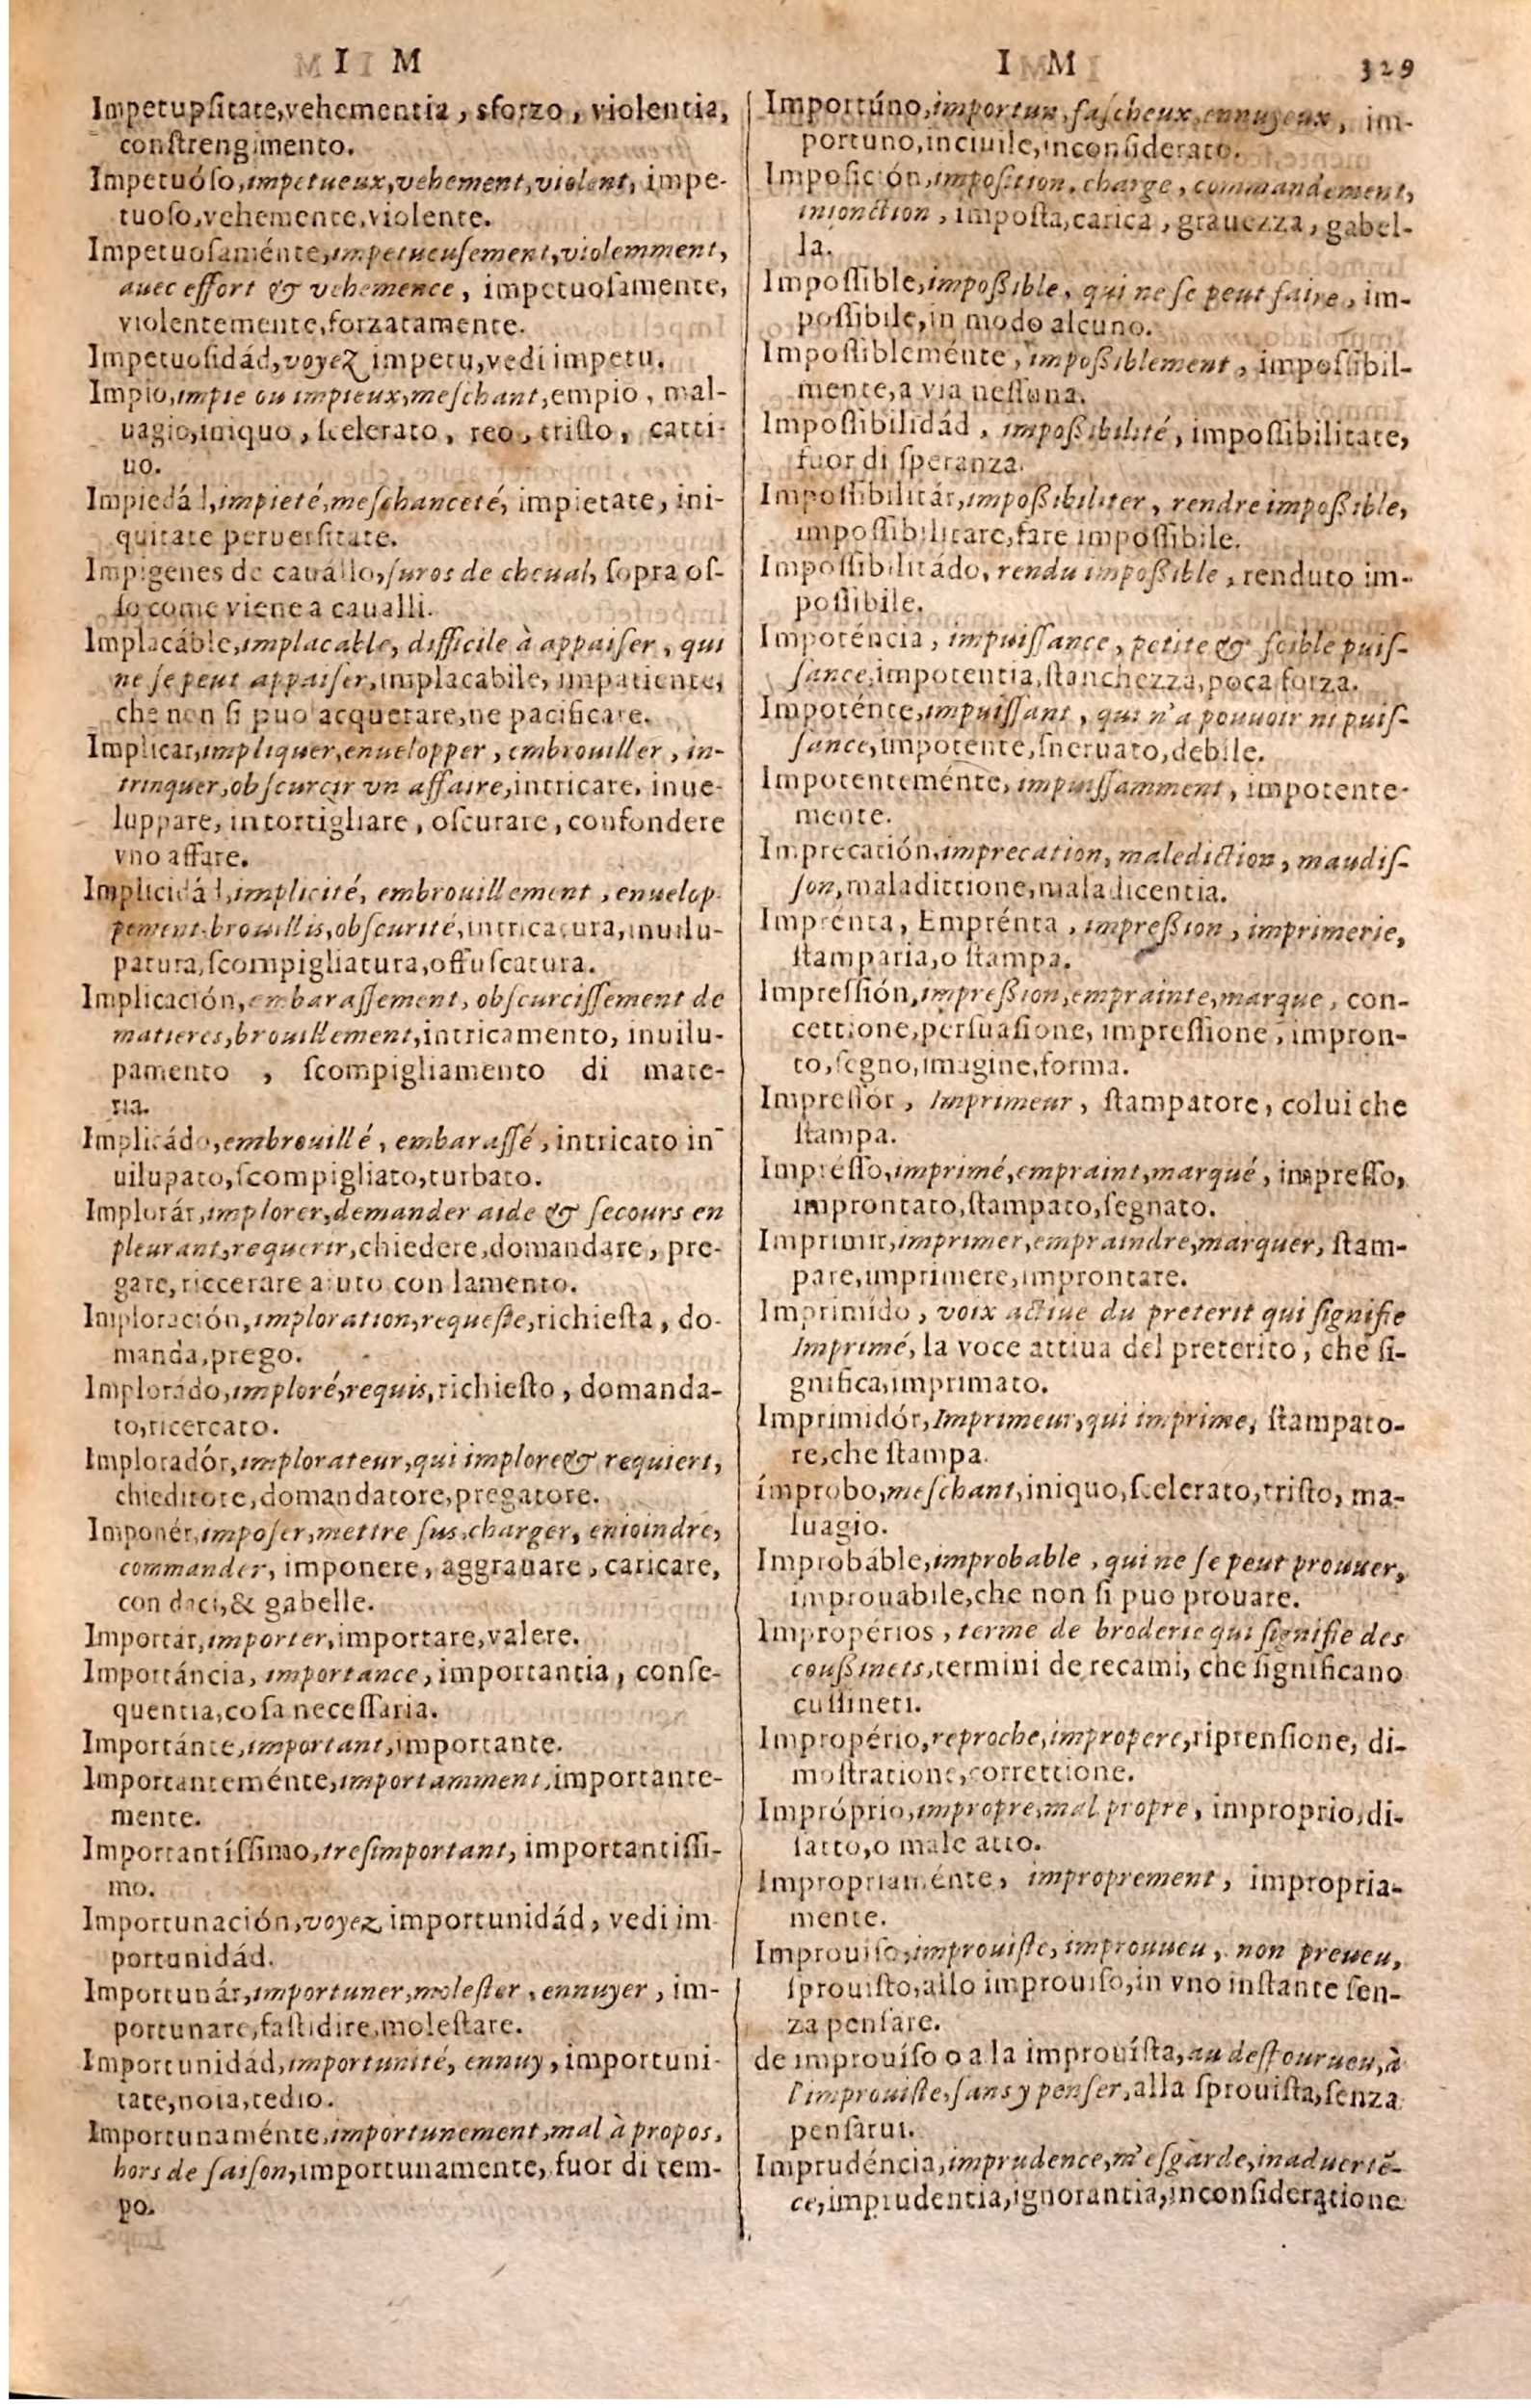 I M
Impetuositate,vehementia, sforzo, violentia,
constrengimento.
Impetuóso,impetueux,vehement,violent, impe-
tuoso,vehemente,violente.
Impetuosaménte,impetueusement,violemment,
auec effort & vehemence, impetuosamente,
violentemente,forzatamente.
Impetuosidád,voyez impetu,vedi impetu.
Impio,impie ou impieux,meschant,empio, mal-
uagio,iniquo, scelerato, reo, tristo, catti-
uo.
Impiedád,impieté,meschanceté, impietate, ini-
quitate peruersitate.
Impigenes de cauállo,suros de cheual, sopra os-
so come viene a caualli.
Implacáble,implacable, difficile à appaiser, qui
ne se peut appaiser,implacabile, impatiente,
che non si puo acquetare,ne pacificare.
Implicar,impliquer,enuelopper, embrouiller, in-
trinquer,obscurcir vn affaire,intricare, inue-
luppare, intortigliare, oscurare, confondere
vno affare.
Implicidád,implicité, embrouillement, enuelop-
pement,brouillis,obscurité,intricatura,inuilu-
patura,scompigliatura,offuscatura.
Implicación,embarassement, obscurcissement de
matieres,brouillement,intricamento, inuilu-
pamento , scompigliamento di mate-
ria.
Implicádo,embrouillé, embarassé, intricato in-
uilupato,scompigliato,turbato.
Implorár,implorer,demander aide & secours en
pleurant,requerir,chiedere,domandare, pre-
gare,riccerare aiuto con lamento.
Imploración,imploration,requeste,richiesta, do-
manda,prego.
Implorádo,imploré,requis,richiesto, domanda-
to,ricercato.
Imploradór,implorateur,qui implore & requiert,
chieditore,domandatore,pregatore.
Imponér,imposer,mettre sus,charger, enioindre,
commander, imponere, aggrauare, caricare,
con daci,& gabelle.
Importár,importer,importare,valere.
Importáncia, importance, importantia, conse-
quentia,cosa necessaria.
Importánte,important,importante.
Importanteménte,importamment,importante-
mente.
Importantíssimo,tresimportant, importantissi-
mo.
Importunación,voyez importunidád, vedi im-
portunidád.
Importunár,importuner,molester, ennuyer, im-
portunare,fastidire,molestare.
Importunidád,importunité, ennuy, importuni-
tate,noia,tedio.
Importunaménte,importunement,mal à propos,
hors de saison,importunamente, fuor di tem-
po.
I M 329
Importúno,importun,fascheux,ennuyeux, im-
portuno,inciuile,inconsiderato.
Imposición,imposition, charge, commandement,
inionction, imposta,carica, grauezza, gabel-
la.
Impossible,impoßible, qui ne se peut faire, im-
possibile,in modo alcuno.
Impossibleménte, impoßiblement, impossibil-
mente,a via nessuna.
Impossibilidád, impoßibilité, impossibilitate,
fuor di speranza.
Impossibilitár,impoßibiliter, rendre impoßible,
impossibilitare,fare impossibile.
Impossibilitádo, rendu impoßible, renduto im-
possibile.
Impoténcia, impuissance, petite & foible puis-
sance,impotentia,stanchezza,poca forza.
Impoténte,impuissant, qui n'a pouuoir ni puis-
sance,impotente,sneruato,debile.
Impotenteménte, impuissamment, impotente-
mente.
Imprecación,imprecation, malediction, maudis-
son,maladittione,maladicentia.
Imprénta, Emprénta, impreßion, imprimerie,
stamparia,o stampa.
Impressión,impreßion,emprainte,marque, con-
cettione,persuasione, impressione, impron-
to,segno,imagine,forma.
Impressór, Imprimeur, stampatore, colui che
stampa.
Imprésso,imprimé,empraint,marqué, impresso,
improntato,stampato,segnato.
Imprimir,imprimer,empraindre,marquer, stam-
pare,imprimere,improntare.
Imprimído, voix actiue du preterit qui signifie
Imprimé, la voce attiua del preterito, che si-
gnifica,imprimato.
Imprimidór,Imprimeur,qui imprime, stampato-
re,che stampa.
ímprobo,meschant,iniquo,scelerato,tristo, ma-
luagio.
Improbáble,improbable, qui ne se peut prouuer,
improuabile,che non si puo prouare.
Impropérios, terme de broderie qui signifie des
coußinets,termini de recami, che significano
cussineti.
Impropério,reproche,impropere,riprensione, di-
mostratione,correttione.
Impróprio,impropre,mal propre, improprio,di-
satto,o male atto.
Impropriaménte, improprement, impropria-
mente.
Improuiso,improuiste, improuueu, non preueu,
sprouisto,allo improuiso,in vno instante sen-
za pensare.
de improuíso o a la improuísta,au destourueu,à
l'improuiste,sans y penser,alla sprouista,senza
pensarui.
Imprudéncia,imprudence,m'esgàrde,inaduertē-
ce,imprudentia,ignorantia,inconsideratione